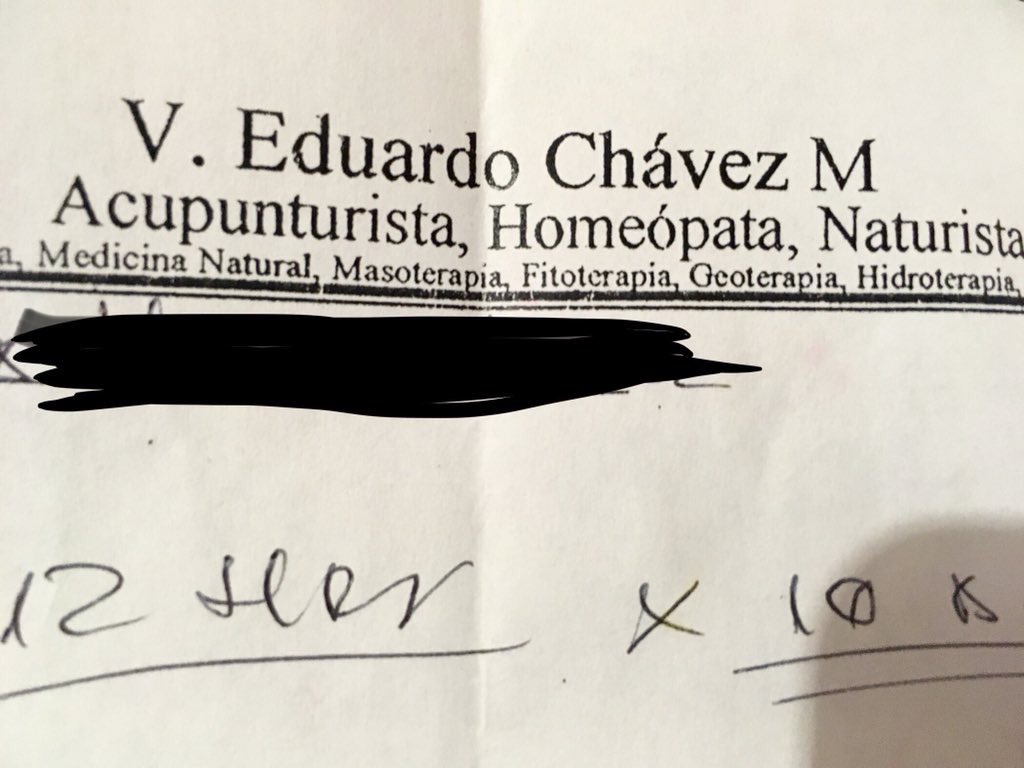 V. Eduardo Chávez M
Acupunturista, Homeópata, Naturista
a, Medicina Natural, Masoterapia, Fitoterapia, Geoterapia, Hidroterapia,
12 Hor x 10